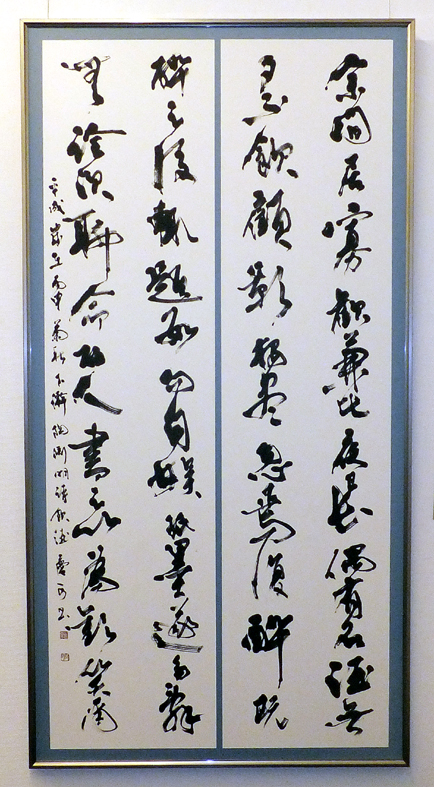 余閒居寡歡兼比夜已長偶有名酒無
夕不飲顧影獨盡忽焉復醉既
醉之後輒題數句自娛紙墨遂多辭
無詮次聊命故人書之以為歡笑爾
歳在丙申菊秋下澣陶淵明詩飲酒